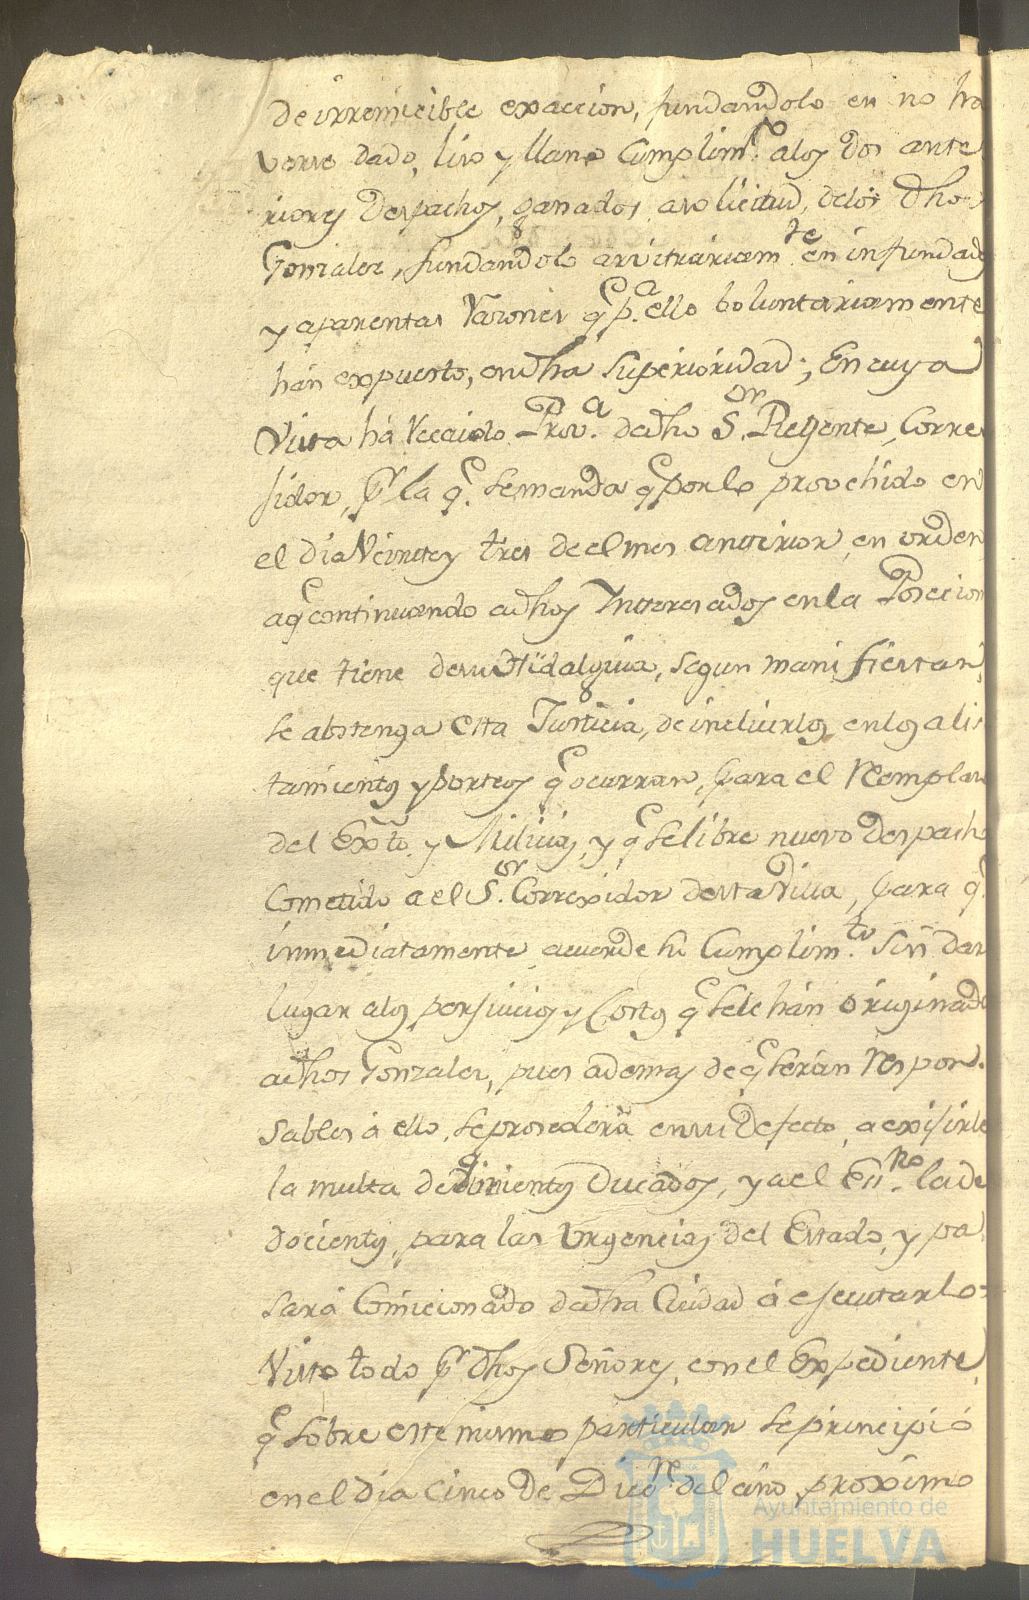 de irremicible exaccion, fundandolo en no ha
verse dado, liso y llano Cumplim.to alos dos ante
riores Despachos, ganados a solicitud, delos dhos
Gonzales, fundandolo arvitrariam.te en infundadas
y aparentas Razones q.e p.a ello boluntariamente
hán expuesto, en dha Superioridad; En cuya
Vista há recaido Prov.a de dho S.or Regente, Corre
sidor, p.r la q.e se manda q.e por lo provehido en
el dia Veinte y tres de el mes anterior, en orden
a q.e continuando a dhos Interesados en la Posecion
que tiene de su Hidalguia, segun manifiestan,
se abstenga esta Justicia, de incluirlos en los alis
tamientos y sorteos q.e ocurran, para el Remplazo
del Exto. y Milicias, y q.e se libre nuevo Despacho
Cometido a el S.or Correxidor desta Villa, para q.e
inmediatamente acuerde su Cumplim.to sin dar
lugar alos persuicios y Costos q.e sele hán originado
a dhos Gonzales, pues ademas de q.e serán Respon
sables á ello, se prosederá en su defecto, a exisirle
la multa de Ducados, y a el Essno. la de
docientos, para las Urgencias del Estado, y pa
sará Comicionado de dha Ciudad á esecutarlo=
Visto todo p.r dhos Señores, con el Expediente
q.e sobre este mismo particular se principió
en el dia Cinco de Dic.re del año proximo
Ayuntamiento de
HUELVA